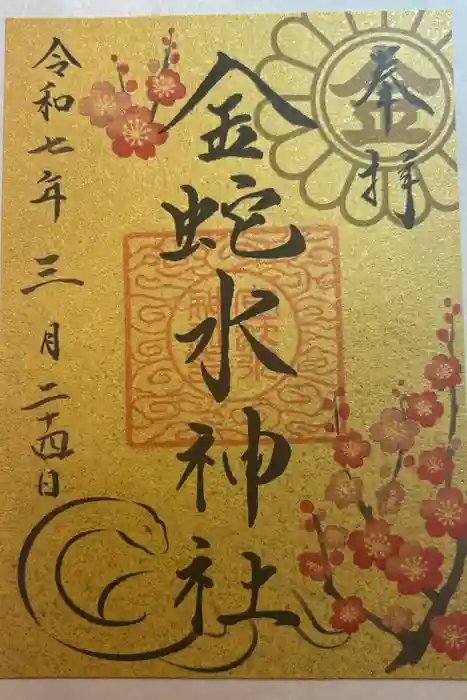 奉拝
金
金蛇水神社
令和七年 三月 二十四日